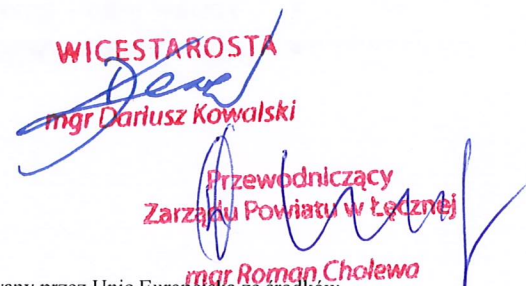 WICESTAROSTA
mgr Dariusz Kowalski
Przewodniczący
Zarządu Powiatu w Łęcznej
mgr Roman Cholewa
przez Unię